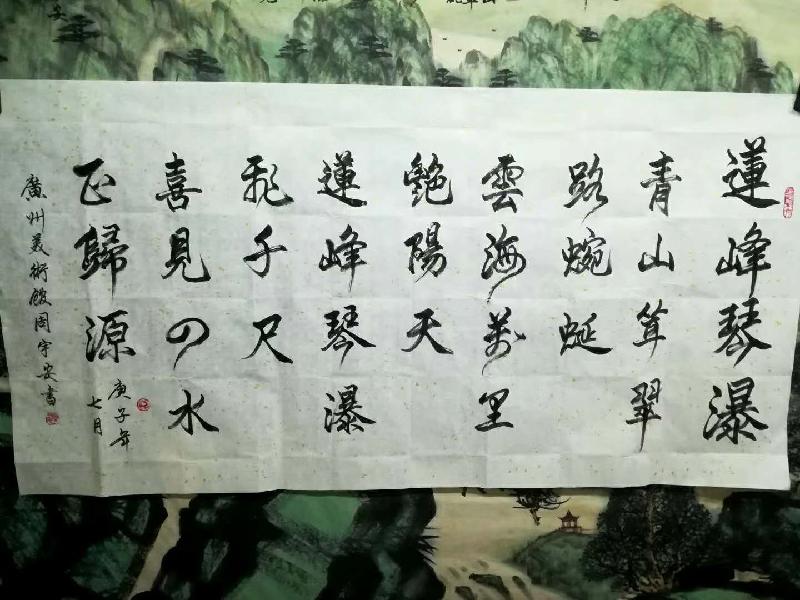 蓮峰琴瀑
青山聳翠
路蜿蜒
雲海萬里
艷陽天
蓮峰琴瀑
飛千尺
喜見四水
正歸源
庚子年
七月
廣州美術館周宇安書